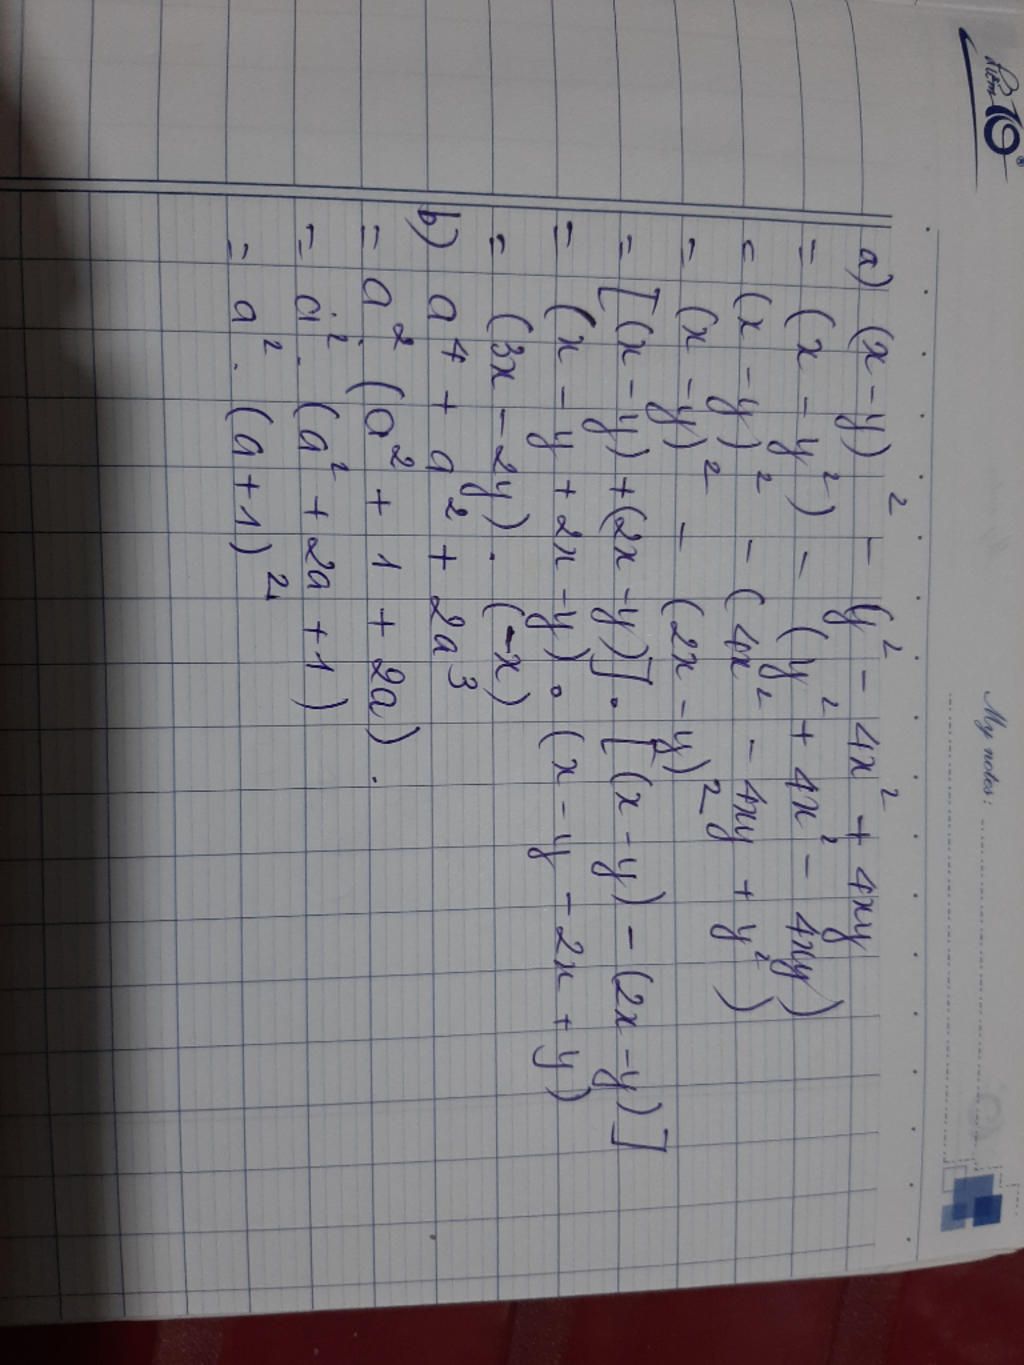 Điểm 10
My notes:
a) (x-y)² - y² - 4x² + 4xy
= (x-y²) - (y² + 4x² - 4xy)
= (x-y)² - (4x² - 4xy + y²)
= (x-y)² - (2x-y)²
= [(x-y)+(2x-y)].[(x-y)-(2x-y)]
= (x-y+2x-y).(x-y-2x+y)
= (3x-2y).(-x)
b) a⁴ + a² + 2a³
= a² (a² + 1 + 2a).
= a². (a² + 2a + 1)
= a². (a+1)²